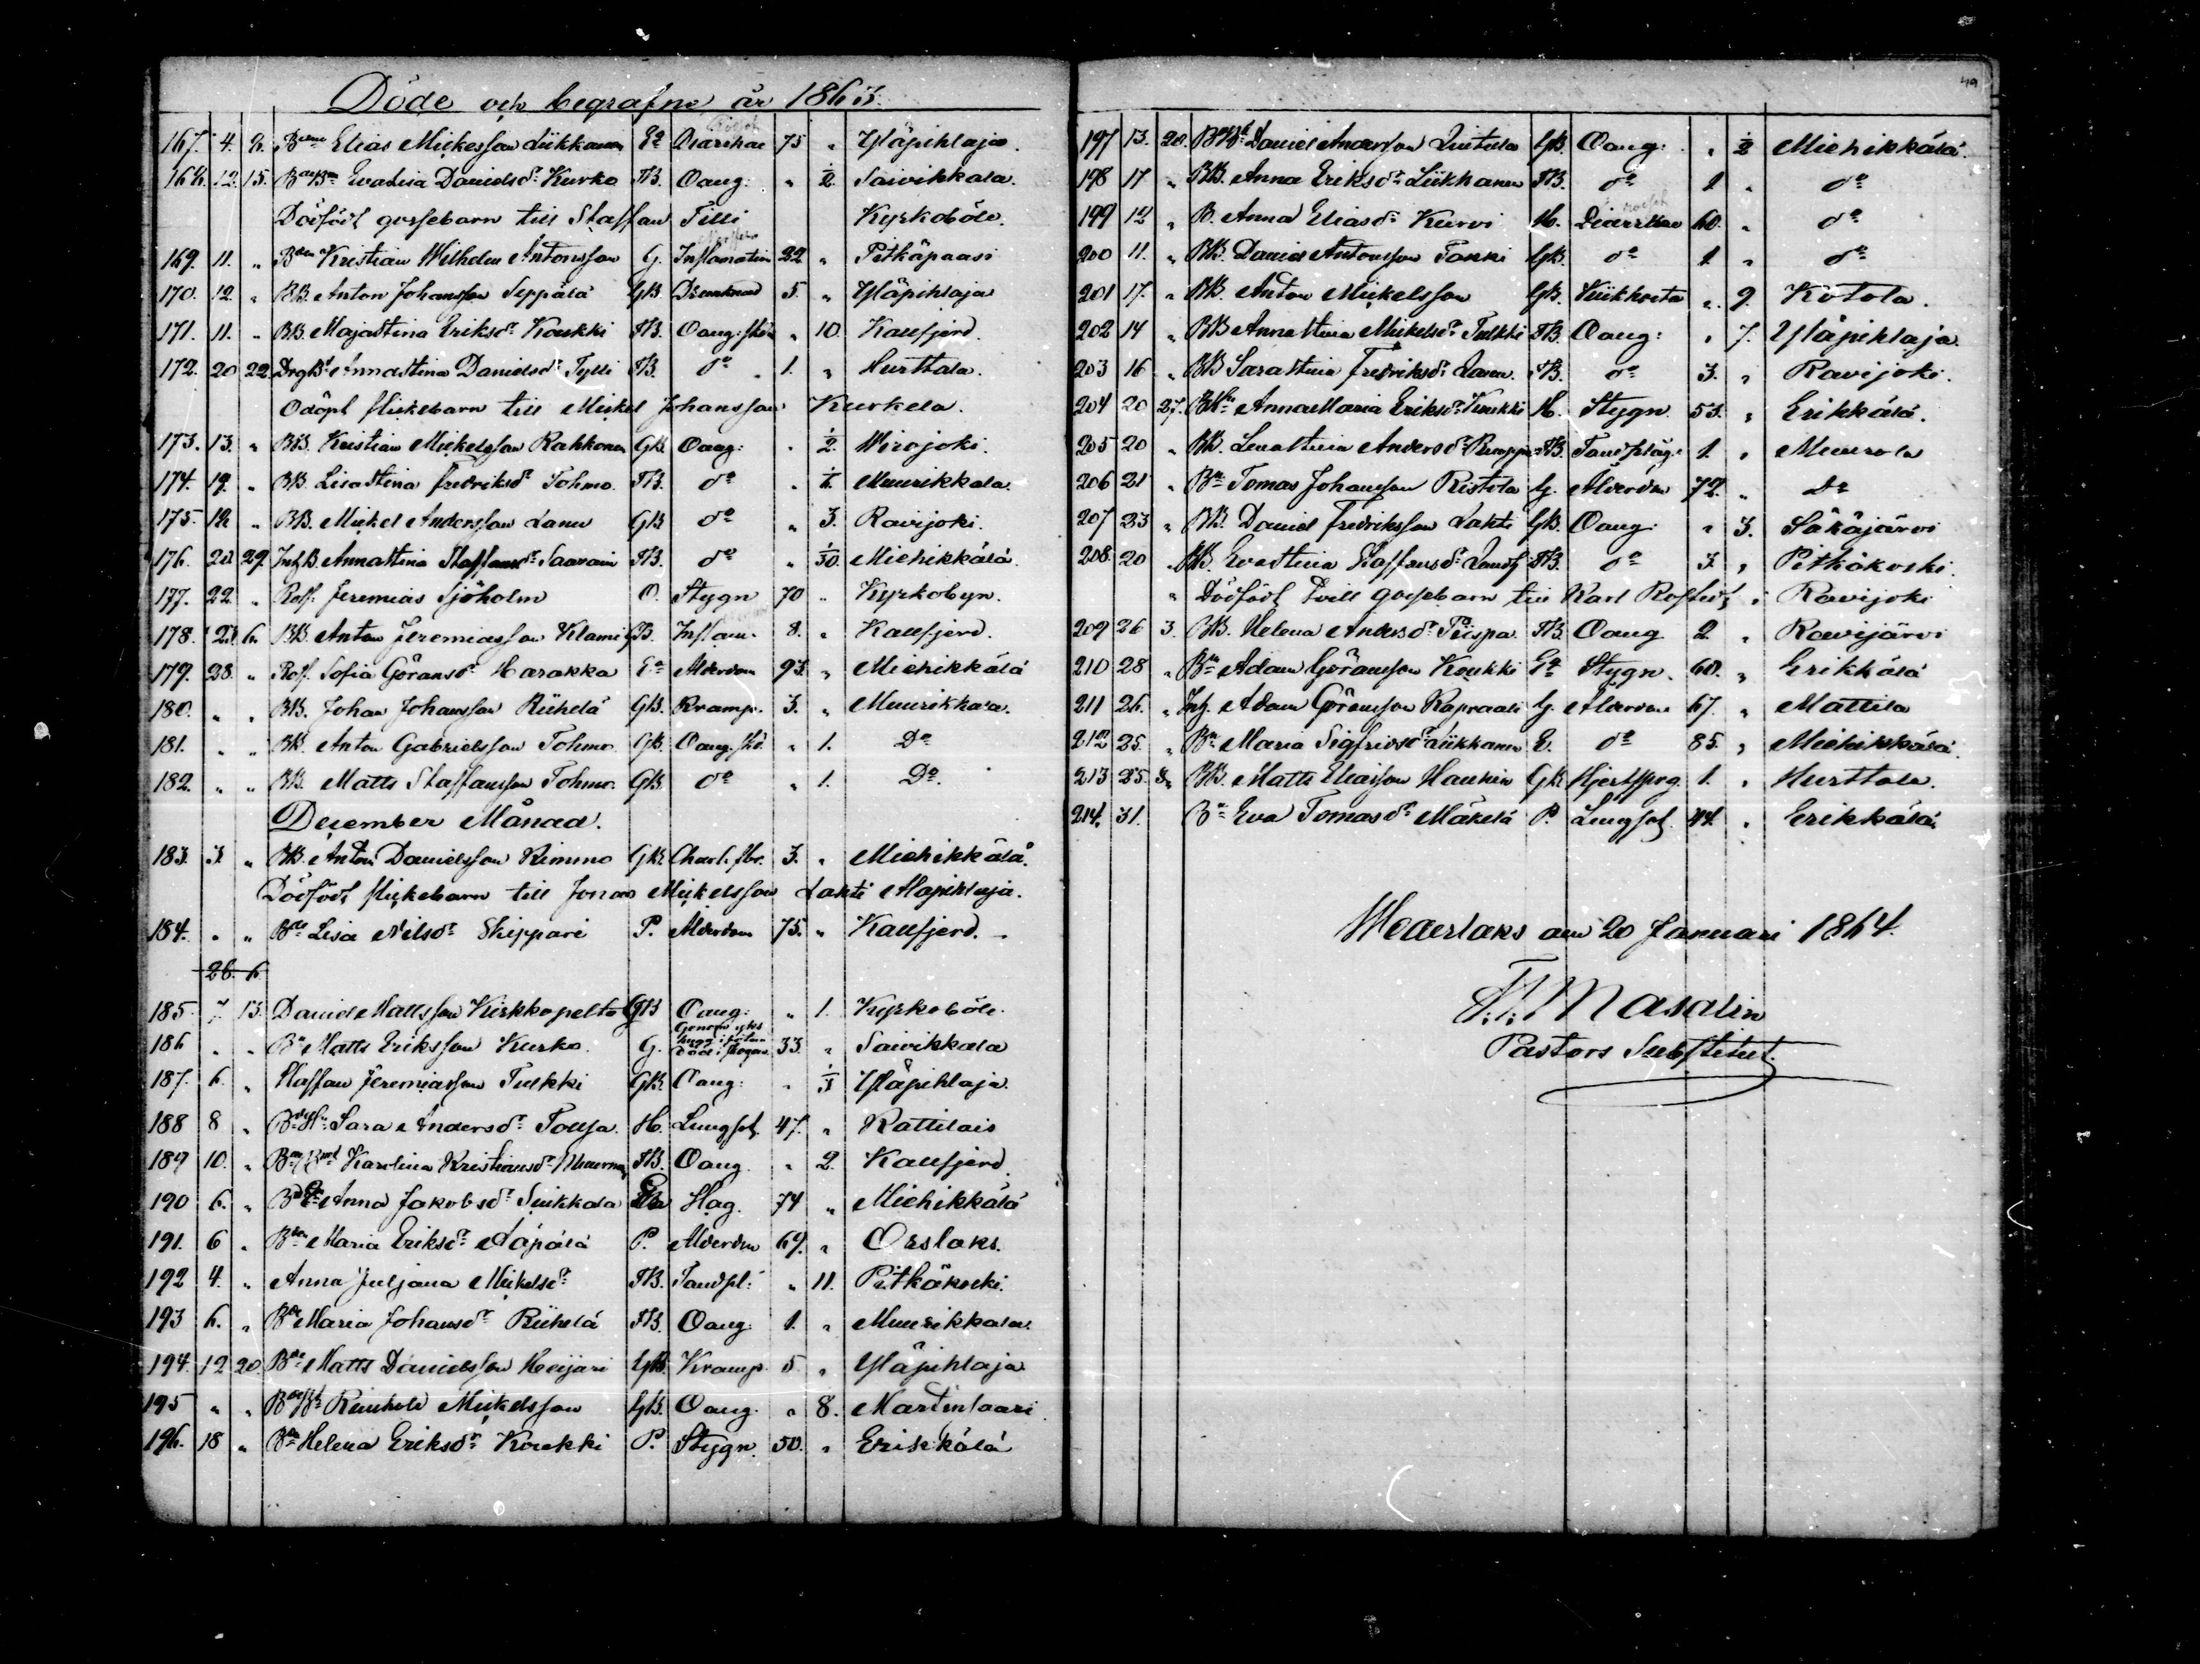 Döde och begrafne år 1863.
167. 4. 8. Elias Mickelsson Liikkanen Ea Diarrhae 75 " Yläpihlaja.
168. 12. 15. Evalisa Danielsdr Kurko FB. Oang: " 1/2. Saivikkala.
Dödfödt gossebarn till Staffan Tilli Kyrkoböle.
169. 11. " Kristian Wilhelm Antonsson G. Inflamation 22 " Pitkäpaasi
170. 12. " BB. Anton Johansson Seppälä GB. Drunknad 5. " Yläpihlaja
171. 11. " BB. Majastina Eriksdr Koukki FB. Oang: " 10. Kallfjerd.
172. 20 22. Annastina Danielsdr Tylli FB. do " 1. " Hurttala.
Odöpt flickebarn till Mickel Johansson Kurkela.
173. 13. " BB. Kristian Mickelsson Rahkonen GB. Oang: " 1/2. Wirojoki.
174. 19. " BB. Lisastina Fredriksdr Tohmo. FB. do " Muurikkala.
175. 18 " BB. Mickel Andersson Lanu GB do " 3. Ravijoki.
176. 28 29. Inh B. Annastina Staffansdr Saarain FB. do " 1/30. Miehikkälä.
177. 22. " Jeremias Sjöholm O. Stygn 70 " Kyrkobyn.
178. 28 6. BB. Anton Jeremiasson Klami GB. Inflam. 8. " Kallfjerd.
179. 28. " Sofia Göransdr Harakka Ea Ålderdom 93. " Miehikkälä
180. " " BB. Johan Johansson Riihelä GB. Kramp. 3. " Muurikkala.
181. " " BB. Anton Gabrielsson Tohmo. GB. Oang. " 1. Do
182. " " BB. Matts Staffansson Tohmo. GB. do " 1. Do.
December Månad.
183. 3. " BB. Anton Danielsson Kimmo GB. 3. " Miehikkälä.
Dödfödt flickebarn till Jonas Mickelsson Lahti Alapihlaja.
184. " " Lisa Nilsdr Skippari P. Ålderdom 75. " Kallfjerd.
26. 6.
185. 7. 13. Daniel Mattsson Kirkkopelto GB Oang: " 1. Kyrkoböle.
186 " " Matts Eriksson Kurko. G. Genom yxhugg i foten Död i skogen. 33. " Saivikkala
187. 6. " Staffan Jeremiasson Tulkki GB. Oang: " 1/3 Yläpihlaja.
188 8 " Sara Andersdr Tolsa. H. Lungsot. 47. " Kattilais
189 10. " Karolina Kristiansdr FB. Oang. " 2. Kallfjerd.
190 6. " Anna Jakobsdr Suikkala Slag. 74 " Miehikkälä
191. 6 " Maria Eriksdr P. Ålderdom 69. " Orslaks.
192 4. " Anna Juljana Mickelsdr FB. Tandspl: " 11. Pitkäkoski.
193 6. " Maria Johansdr Riihelä FB. Oang: 1. " Muurikkala.
194. 12 20. Matts Danielsson GB. Kramp. 5 " Yläpihlaja
195 " " Reinhold Mickelsson GB. Oang. " 8. Martinsaari
196. 18 " Helena Eriksdr Koukki P. Stygn. 50. " Erikkälä
49
197 13. 20. Daniel Andersson GB. Oang: " 1/2 Miehikkälä.
198 17 " BB. Anna Eriksdr Liikkanen FB. do 1 " do
199 12 " Anna Eliasdr Kurvi H. Diarrhae 60. " do
200 11. " BB. Daniel Antonsson Tokki GB. do 1. " do
201 17. " BB. Anton Mickelsson GB. Kikhosta " 9. Kotola.
202 14 " BB Annastina Mickelsdr Tulkki FB. Oang: " 7. Yläpihlaja.
203 16 " BB Sarastina Fredriksdr FB. do 3. " Ravijoki.
204 20 27. AnnaMaria Eriksdr Koukki H. Stygn. 53. " Erikkälä.
205 20 " BB. Lenastina Andersdr FB. 1. " Muurola
206 21 " Tomas Johansson Ristola G. Ålderdm 72. " Do
207 23 " BB. Daniel Fredriksson Lahti GB. Oang: " 3. Säkäjärvi
208. 20 " BB. Evastina Staffansdr FB. do 3. " Pitkäkoski.
" Dödfödt gossebarn till Karl " Ravijoki
209 26 3. BB. Helena Andersdr FB. Oang. 2 " Ravijärvi
210 28 " Adam Göransson Koukki Ea Stygn. 60. " Erikkälä
211 26. " Inh. Adam Göransson Kapraali G. Ålderdom 67. " Mattila
212 25. " Maria Sigfridsdr Liikkanen E. do 85. " Miehikkälä
213 25. 3. BB. Matts Eliasson Haukin GB. 1. " Hurttala.
214. 31. Eva Tomasdr Mäkelä P. Lungsot. 44. " Erikkälä.
Wederlaks den 20 Januari 1864.
Masalin
Pastors Substitut.